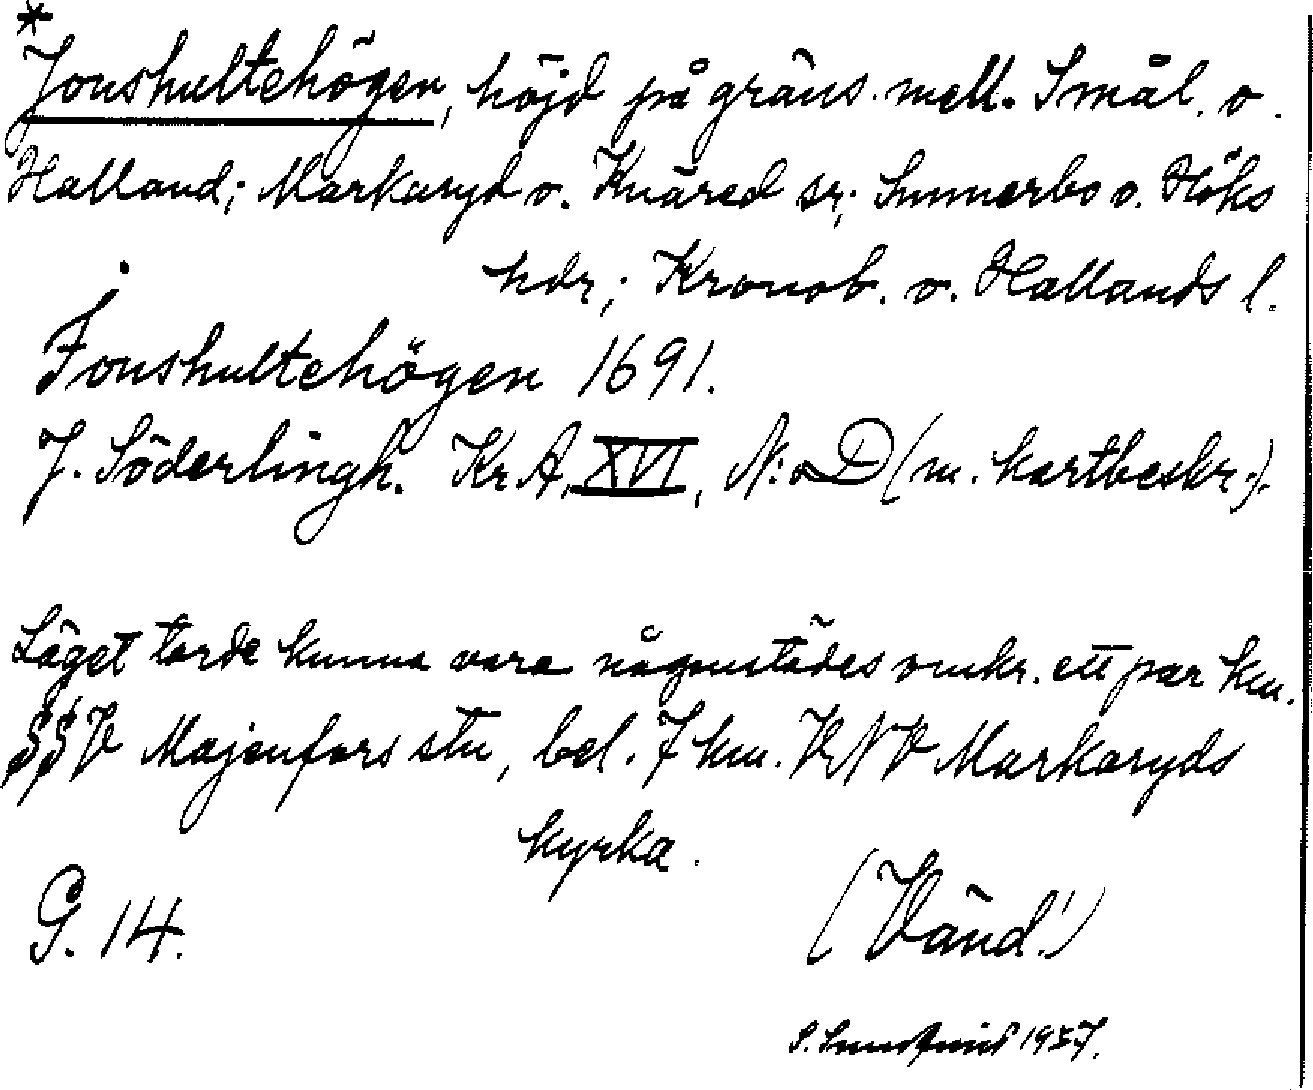 *
Jonshultehögen, höjd på gräns mell. Smål. o.
Halland; Markaryd o. Knäred sr; Sunnerbo o. Höks
hdr; Kronob. o. Hallands l.
Jonshultehögen 1691.
J. Söderlingh. Kr.A. XVI, N:o D (m. kartbeskr.).
Läget torde kunna vara någonstädes omkr. ett par km.
SSV Majenfors stn, bel. 7 km. VNV Markaryds
kyrka.
G. 14.
(Vänd!)
S. 1937.